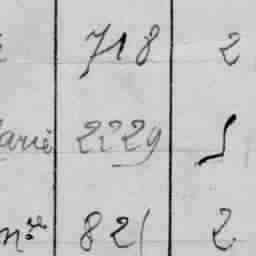 718 2
arié 2229
m^re 821 2